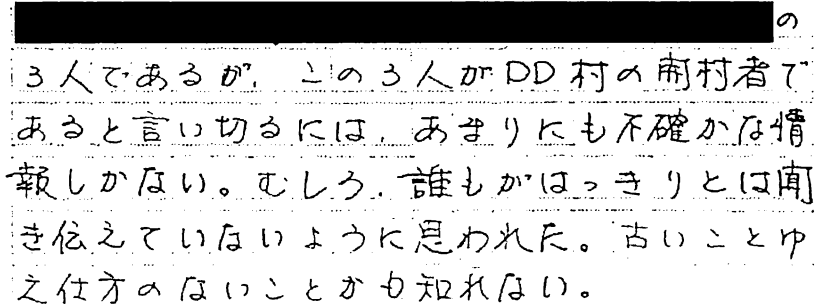 の
3人であるが、この3人がDD村の開村者で
あると言い切るには、あまりにも不確かな情
報しかない。むしろ、誰もがはっきりとは聞
き伝えていないように思われた。古いことゆ
え仕方のないことかも知れない。